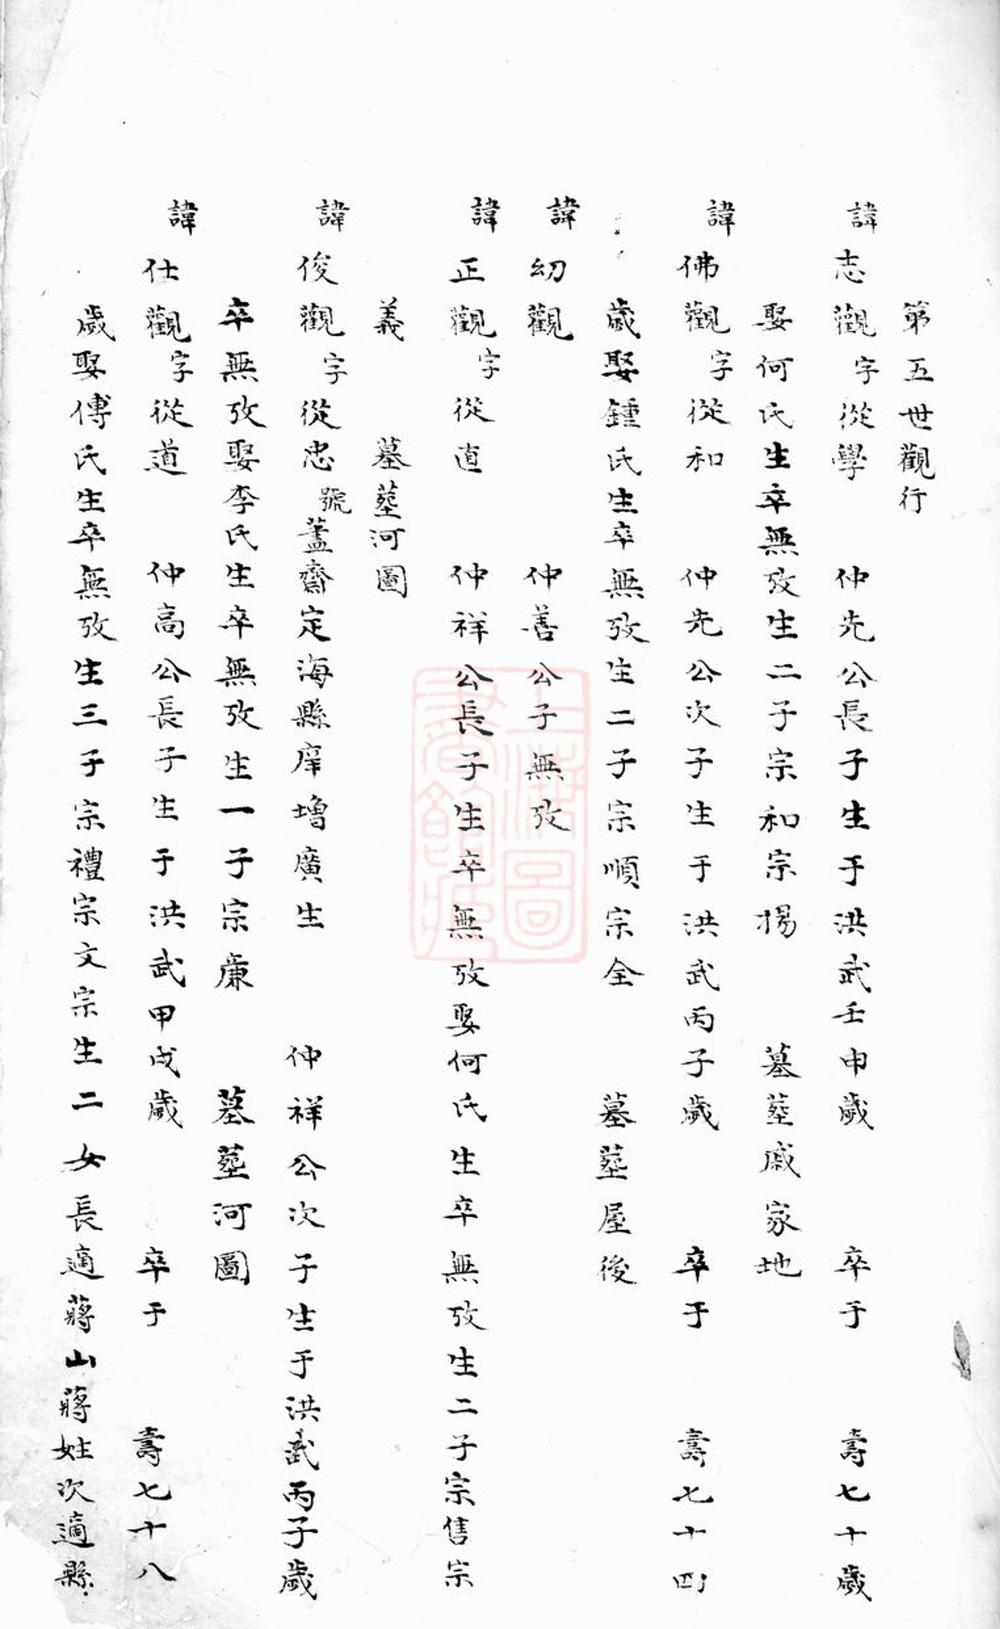 第五世觀行
諱志觀字從學 仲先公長子生于洪武壬申歲 卒于 壽七十歲
娶何氏生卒無攷生二子宗和宗揚 墓塟戚家地
諱佛觀字從和 仲先公次子生于洪武丙子歲 卒于 壽七十四
歲娶鍾氏生卒無攷生二子宗順宗全 墓塟屋後
諱幼觀 仲善公子無攷
諱正觀字從直 仲祥公長子生卒無攷娶何氏生卒無攷生二子宗售宗
義 墓塟河圖
諱俊觀字從忠號藎齋定海縣庠增廣生 仲祥公次子生于洪武丙子歲
卒無攷娶李氏生卒無攷生一子宗廉 墓塟河圖
諱仕觀字從道 仲高公長子生于洪武甲戌歲 卒于 壽七十八
歲娶傅氏生卒無攷生三子宗禮宗文宗生二女長適蔣山蔣姓次適縣
上海圖書館藏